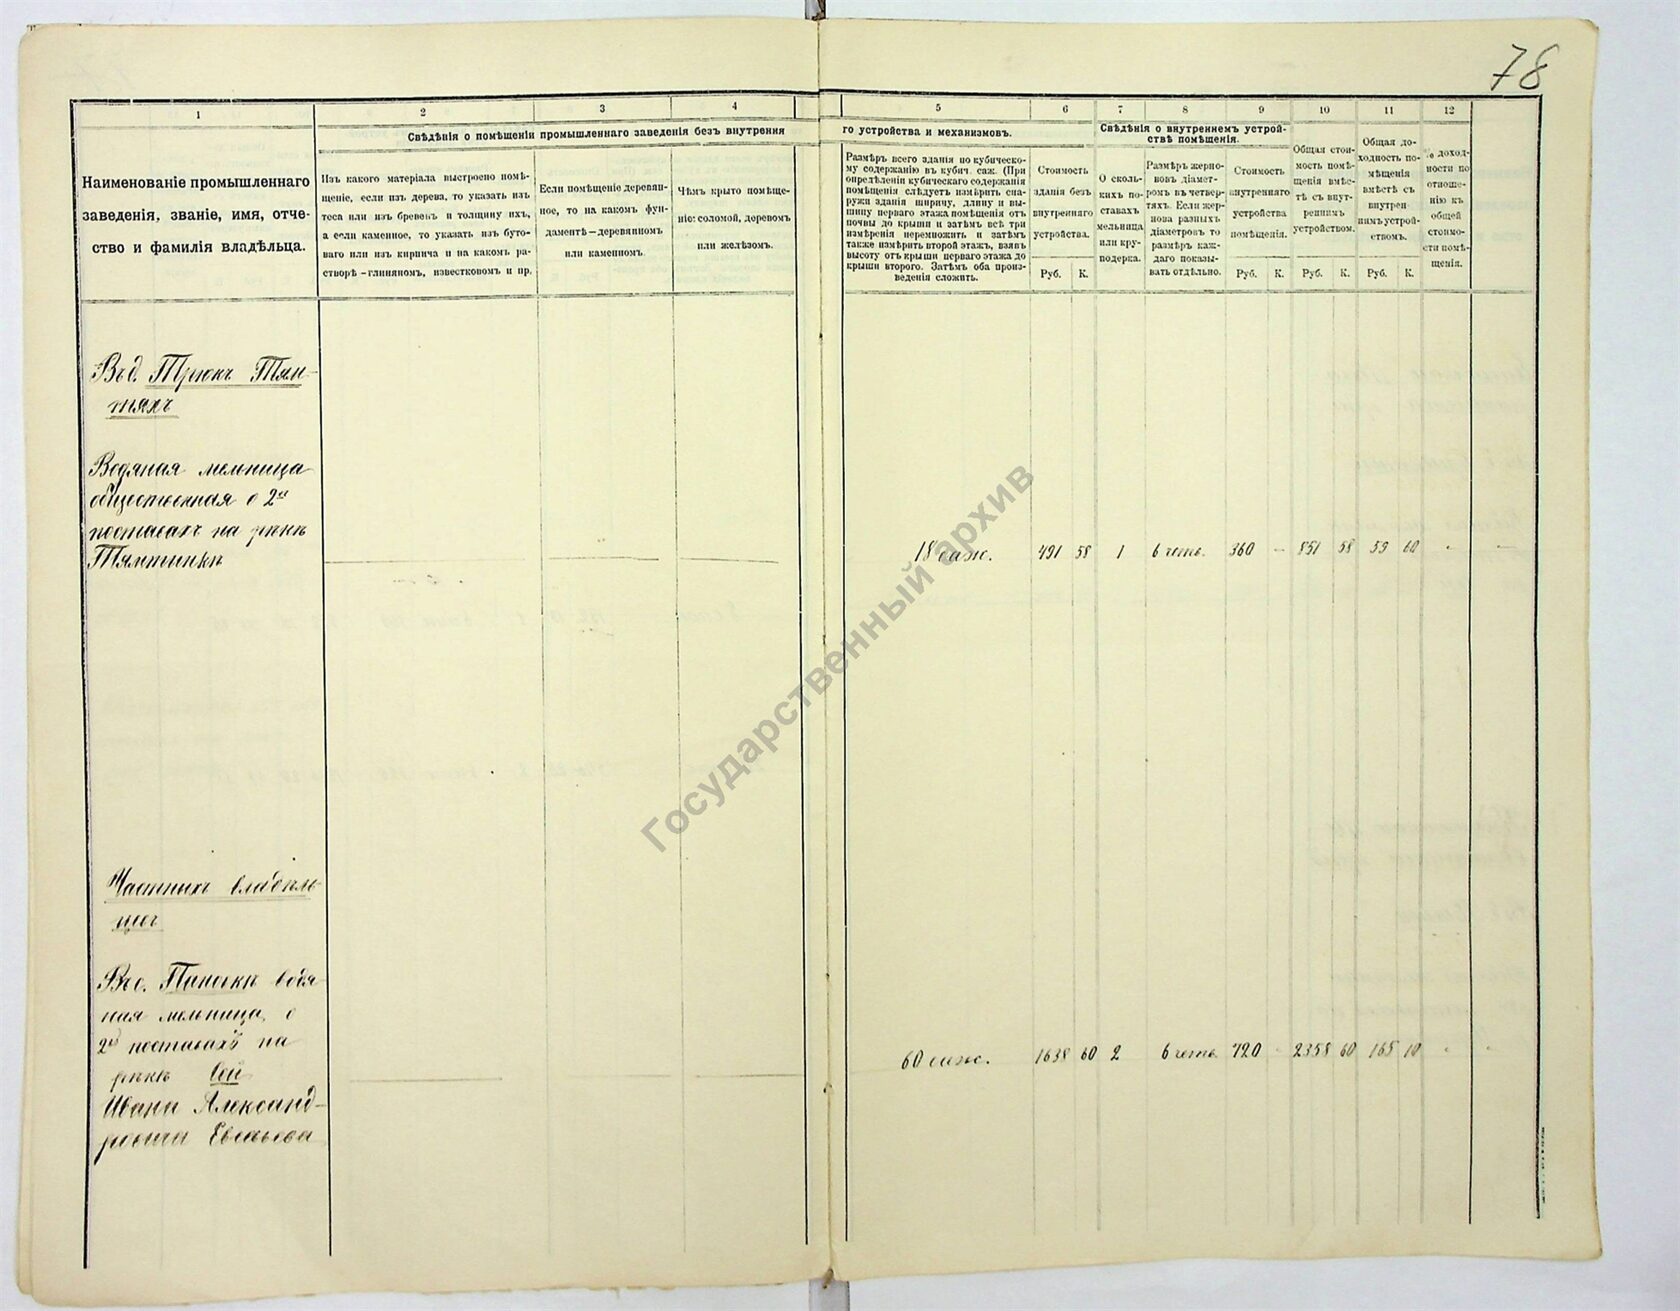 78
1 2 3 4 5 6 7 8 9 10 11 12
Свѣдѣнія о помѣщеніи промышленнаго заведенія безъ внутрення
го устройства и механизмовъ.
Свѣдѣнія о внутреннемъ устрой-
ствѣ помѣщенія.
Наименованіе промышленнаго
заведенія, званіе, имя, отче-
ство и фамилія владѣльца.
Изъ какого матеріала выстроено помѣ-
щеніе, если изъ дерева, то указать изъ
теса или изъ бревенъ и толщину ихъ,
а если каменное, то указать изъ буто-
ваго или изъ кирпича и на какомъ ра-
створѣ-глиняномъ, известковомъ и пр.
Если помѣщеніе деревян-
ное, то на какомъ фун-
даментѣ—деревянномъ
или каменномъ.
Чѣмъ крыто помѣще-
ніе: соломой, деревомъ
или желѣзомъ.
Размѣръ всего зданія по кубическо-
му содержанію въ кубич. саж. (При
опредѣленіи кубическаго содержанія
помѣщенія слѣдуетъ измѣрить сна-
ружи зданія ширину, длину и вы-
шину перваго этажа помѣщенія отъ
почвы до крыши и затѣмъ всѣ три
измѣренія перемножить и затѣмъ
также измѣрить второй этажъ, взявъ
высоту отъ крыши перваго этажа до
крыши второго. Затѣмъ оба произ-
веденія сложить.
Стоимость
зданія безъ
внутренняго
устройства.
Руб. К.
О сколь-
кихъ по-
ставахъ
мельница
или кру-
подерка.
Размѣръ жерно-
вовъ діамет-
ромъ въ четвер-
тяхъ. Если жер-
нова разныхъ
діаметровъ то
размѣръ каж-
даго показы-
вать отдѣльно.
Стоимость
внутренняго
устройства
помѣщенія.
Руб. К.
Общая стои-
мость помѣ-
щенія вмѣс-
тѣ съ внут-
реннимъ
устройствомъ.
Руб. К.
Общая до-
ходность по-
мѣщенія
вмѣстѣ съ
внутрен-
нимъ устрой-
ствомъ.
Руб. К.
% доход-
ности по
отноше-
нію къ
общей
стоимо-
сти помѣ-
щенія.
Въ д. Трюкъ Тям-
тяхъ
Водяная мельница
общественная о 2хъ
поставахъ на рѣкѣ
Тямтинкѣ
18 саж. 491 58 1 6 четв. 360 - 851 58 59 60 - -
Частныхъ владѣль-
цевъ
Въ с. водя-
ная мельница о
2хъ поставахъ на
рѣкѣ
Ивана Александ-
ровича
60 саж. 1638 60 2 6 четв. 720 - 2358 60 165 10 - -
Государственный архив